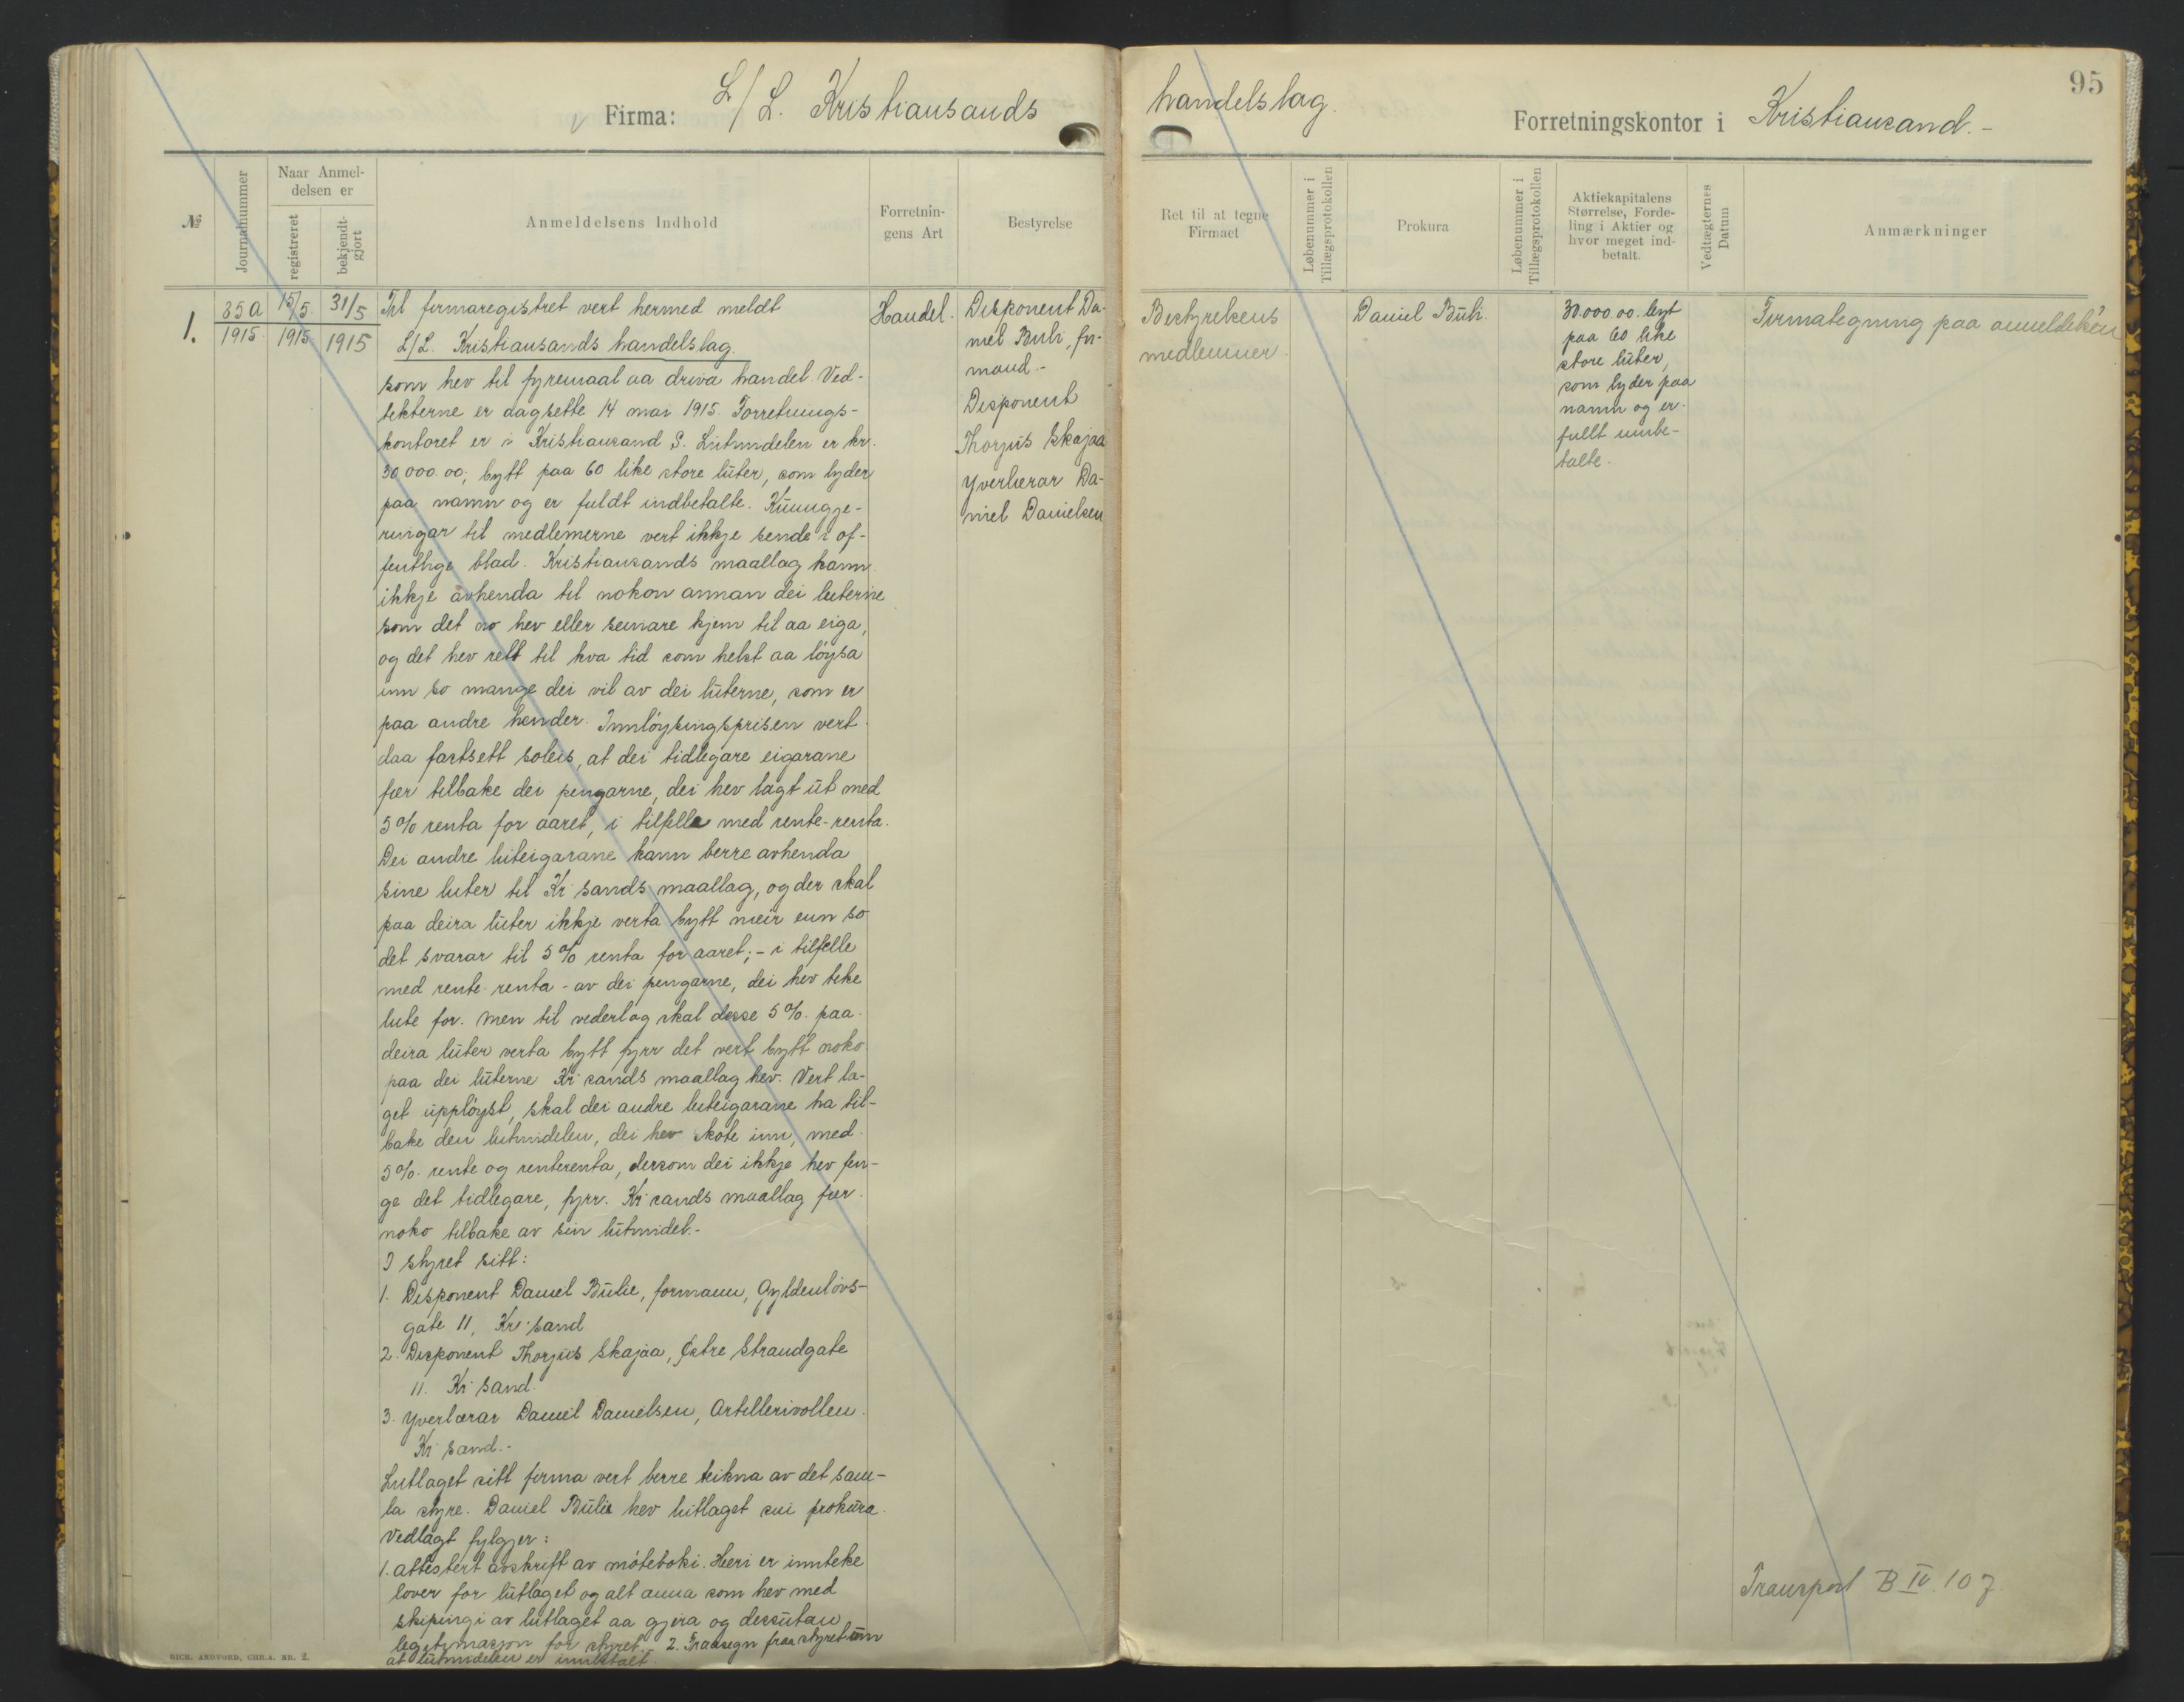 Firma: L/L. Kristiansands
handelslag.
Forretningskontor i Kristiansand.-
95
№
Journalnummer
Naar Anmel-
delsen er
registreret
bekjendt-
gjort
Anmeldelsens Indhold
Forretnin-
gens Art
Bestyrelse
Ret til at tegne
Firmaet
Løbenummer i
Tillægsprotokollen
Prokura
Løbenummer i
Tillægsprotokollen
Aktiekapitalens
Størrelse, Forde-
ling i Aktier og
hvor meget ind-
betalt.
Vedtægternes
Datum
Anmærkninger
1.
85a
1915
15/5
1915
31/5
1915
Til firmaregistret vert hermed meldt
L/L. Kristiansands handelslag.
som hev til fyremaal aa driva handel. Ved-
tekterne er dagsette 14 mai 1915. Forretnings-
kontoret er i Kristiansand S. Lutmidelen er kr.
30,000.00, bytt paa 60 like store luter, som lyder
paa namn og er fuldt indbetalte. Kunngje-
ringar til medlemerne vert ikkje sende i of-
fentlige blad. Kristiansands maallag kann
ikkje avhenda til nokon annan dei luterne
som det no hev eller seinare kjem til aa eiga,
og det hev rett til kva tid som helst aa løysa
inn so mange dei vil av dei luterne, som er
paa andre hender. Innløysingsprisen vert
daa fastsett soleis, at dei tidlegare eigarane
fær tilbake dei pengarne, dei hev lagt ut med
5% renta for aaret, i tilfelle med rente-renta.
Dei andre luteigarane kann berre avhenda
sine luter til Kr sands maallag, og der skal
paa deira luter ikkje verta bytt meir enn so
det svarar til 5% renta for aaret; - i tilfelle
med rente-renta - av dei pengarne, dei hev teke
lute for. Men til vederlag skal desse 5%. paa
deira luter verta bytt fyrr det vert bytt noko
paa dei luterne Kr sands maallag hev. Vert la-
get uppløyst, skal dei andre luteigarane ha til-
bake den lutmidelen, dei hev skote inn, med
5%. rente og renterenta, dersom dei ikkje hev fen-
ge det tidlegare, fyrr. Kr sands maallag fær
noko tilbake av sin lutmidel.-
I styret sitt:
1. Disponent Daniel Bulie, formann, Gyldenløvs-
gate 11, Kr sand
2. Disponent Thorjus Skajaa, Østre Strandgate
11. Kr sand.
3. Yverlærar Daniel Danielsen, Artillerivollen.
Kr sand.-
Lutlaget sitt firma vert berre teikna av det sam-
la styre. Daniel Bulie hev lutlaget sin prokura.
Vedlagt fylgjer:
1. attestert avskrift av møteboki. Heri er innteke
lover for lutlaget og alt anna som hev med
skipingi av lutlaget aa gjera og dessutan
legitimasjon for styret. 2. Fraasegn fraa styret um
at lutmidelen er innbetalt.
Handel.
Disponent Da-
niel Buli, for-
mand.-
Disponent
Thorjus Skajaa
Yverlærar Da-
niel Danielsen
Bestyrelsens
medlemmer.
Daniel Buli.
30.000.00. bytt
paa 60 like
store luter,
som lyder paa
namn og er
fullt innbe-
talte.
Firmategning paa anmeldelsen
Transport B IV. 107.
RICH. ANDVORD, CHR.A. NR. 2.